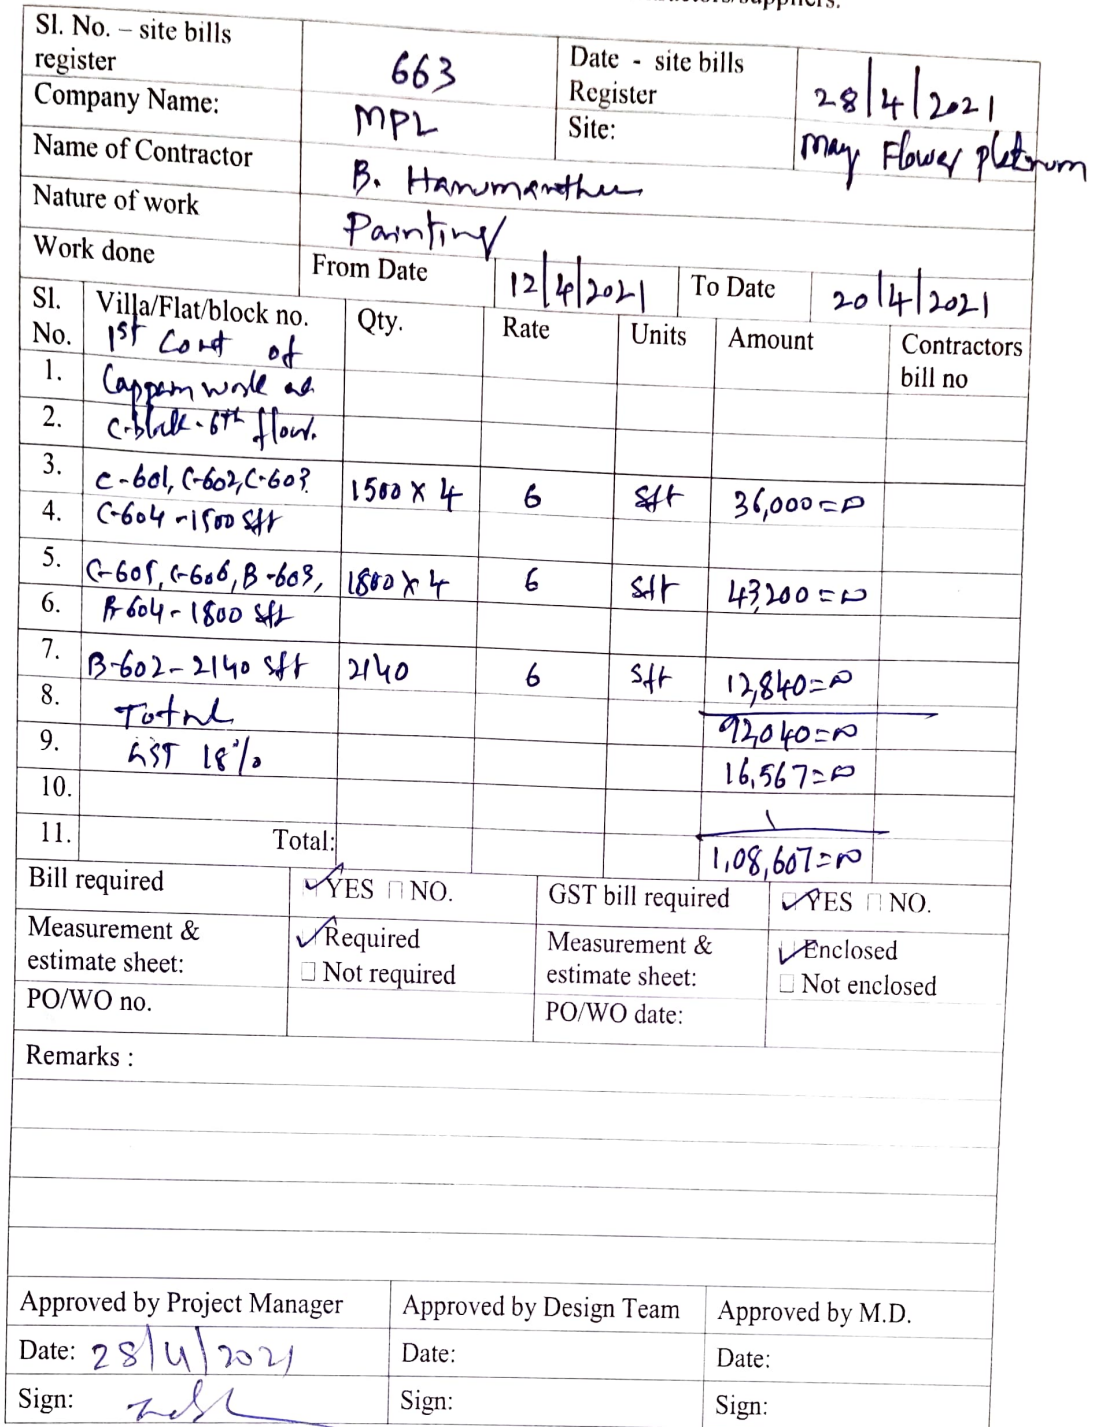 Sl. No. – site bills register 663 Date - site bills Register 28/4/2021
Company Name: MPL Site: May Flower pletinum
Name of Contractor B. Hanumanthu
Nature of work Painting
Work done From Date 12/4/2021 To Date 20/4/2021
Sl. No. Villa/Flat/block no. Qty. Rate Units Amount Contractors bill no
1st Coat of
1. Lappam work at
2. C-block - 6th floor.
3. C-601, C-602, C-603 1500 X 4 6 Sft 36,000=00
4. C-604 - 1500 Sft
5. C-605, C-606, B-603, 1800 X 4 6 Sft 43,200=00
6. B-604 - 1800 Sft
7. B-602 - 2140 Sft 2140 6 Sft 12,840=00
8. Total 92,040=00
9. GST 18% 16,567=00
10.
11. Total: 1,08,607=00
Bill required YES NO. GST bill required YES NO.
Measurement & estimate sheet: Required Not required Measurement & estimate sheet: Enclosed Not enclosed
PO/WO no. PO/WO date:
Remarks :
Approved by Project Manager Approved by Design Team Approved by M.D.
Date: 28/4/2021 Date: Date:
Sign: Sign: Sign: